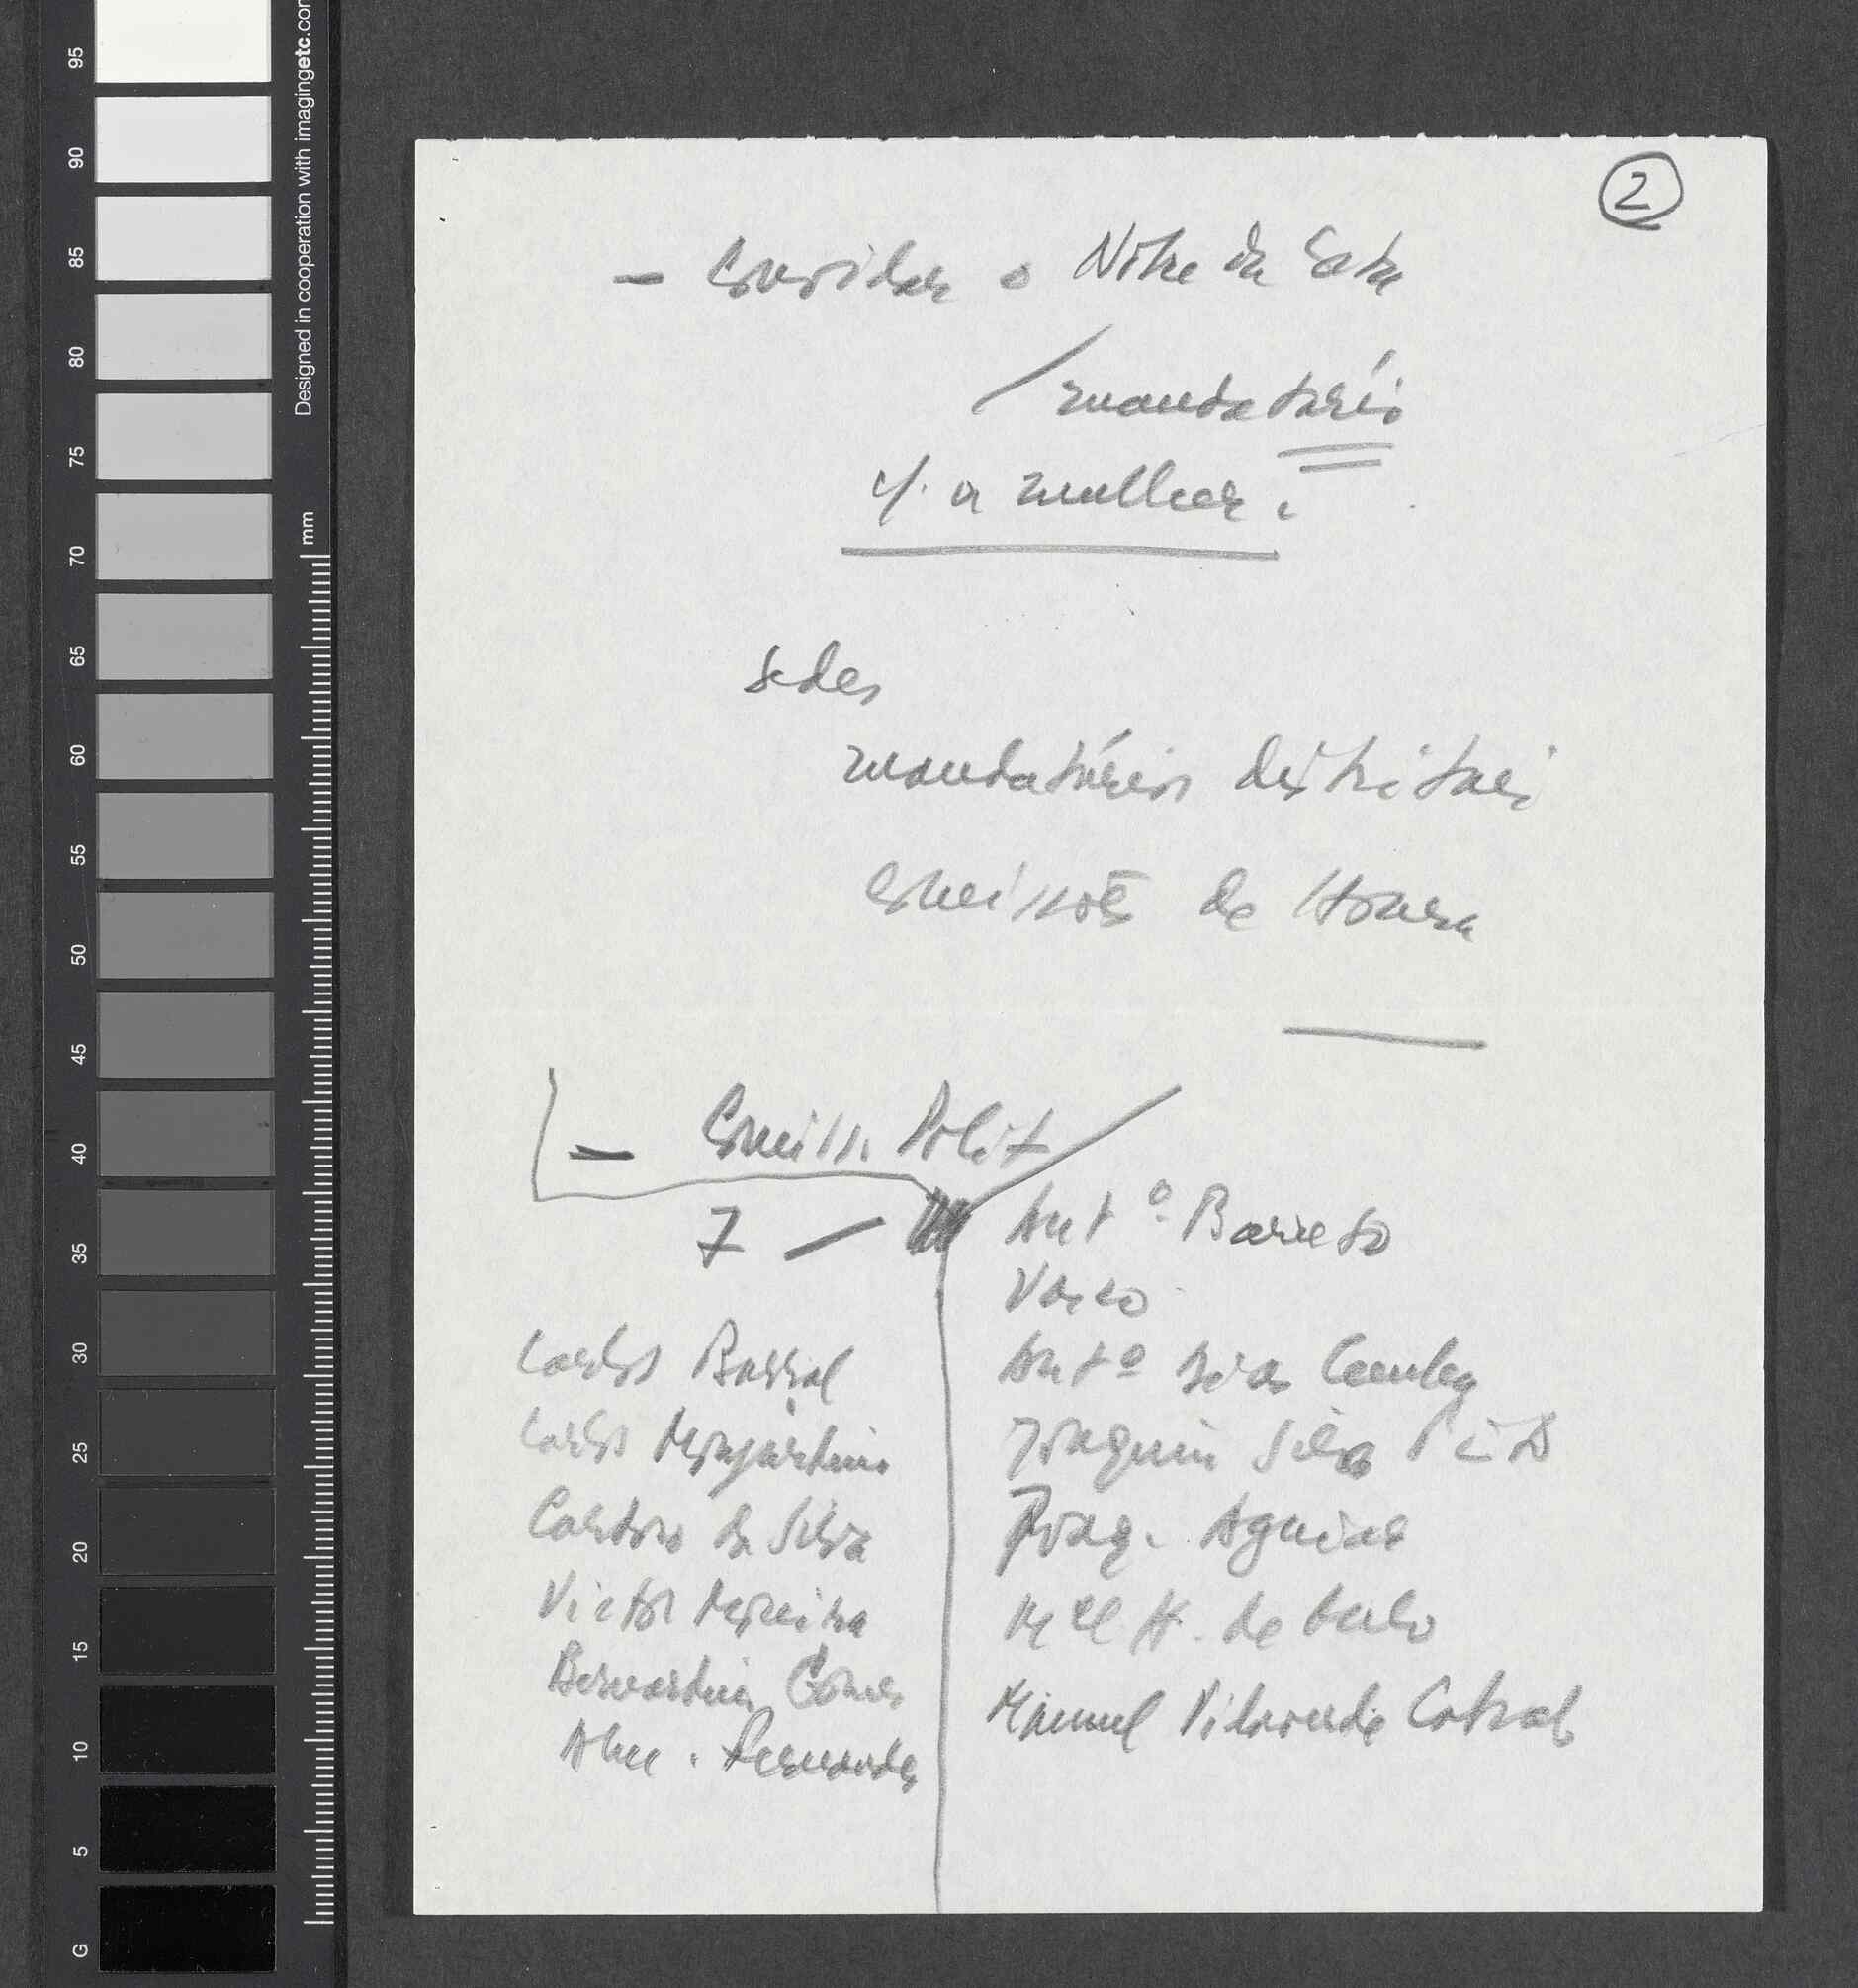 2
- Convidar o Nobre da Costa
mandatário
c/. a mulher.
Sedes
mandatários distritais
Comissões de Honra
- Comiss. Polit
7 —
Antº. Barreto
Vasco
Antº Dias Cunha
Joaquim Silva Pinto
Joaq. Aguiar
Mel H. de Melo
Manuel Villaverde Cabral
Carlos Barral
Carlos Monjardino
Cardoso da Silva
Victor Moreira
Bernardino Gomes
Alm. Fernandes
Designed in cooperation with imagingetc.com
mm
95
90
85
80
75
70
65
60
55
50
45
40
35
30
25
20
15
10
5
G